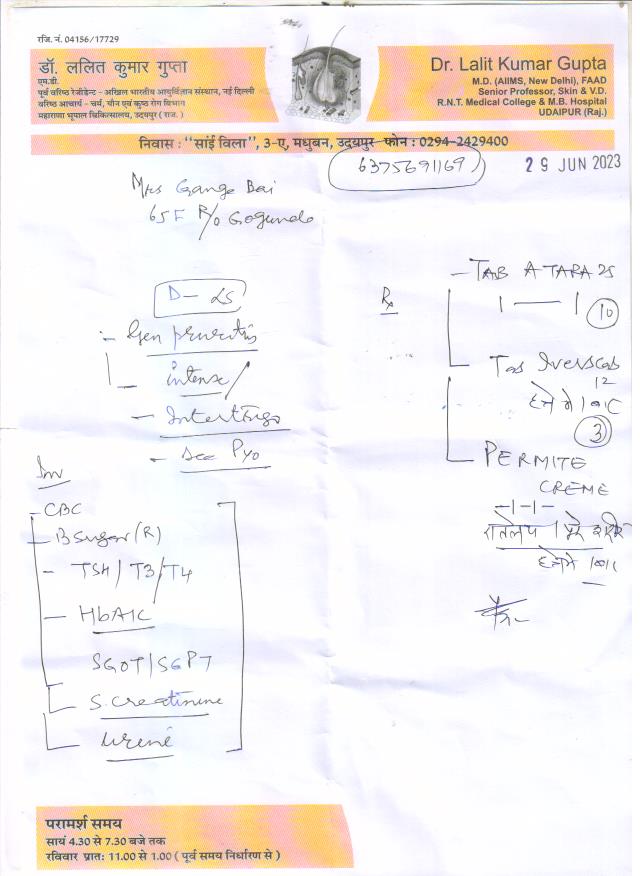 रजि. नं. 04156/17729
डॉ. ललित कुमार गुप्ता
एम.डी.
पूर्व वरिष्ठ रेजीडेन्ट - अखिल भारतीय आयुर्विज्ञान संस्थान, नई दिल्ली
वरिष्ठ आचार्य - चर्म, यौन एवं कुष्ठ रोग विभाग
महाराणा भूपाल चिकित्सालय, उदयपुर ( राज. )
Dr. Lalit Kumar Gupta
M.D. (AIIMS, New Delhi), FAAD
Senior Professor, Skin & V.D.
R.N.T. Medical College & M.B. Hospital
UDAIPUR (Raj.)
निवास : "सांई विला", 3-ए, मधुबन, उदयपुर फोन : 0294-2429400
6375691169
29 JUN 2023
Mrs Ganga Bai
65F R/o Gogunda
D-
- Gen pruritis
- intense
- Intertrigo
- Sec Pyo
Inv
- CBC
- B Sugar (R)
- TSH / T3 / T4
- HbA1C
SGOT / SGPT
S. Creatinine
Urine
Rx
- TAB ATARA 25
1 — 1 (10)
Tab
12
हफ्ते में 1 बार
(3)
- PERMITE
CREME
-1-1-
हफ्ते में 1 बार
परामर्श समय
सायं 4.30 से 7.30 बजे तक
रविवार प्रातः 11.00 से 1.00 ( पूर्व समय निर्धारण से )